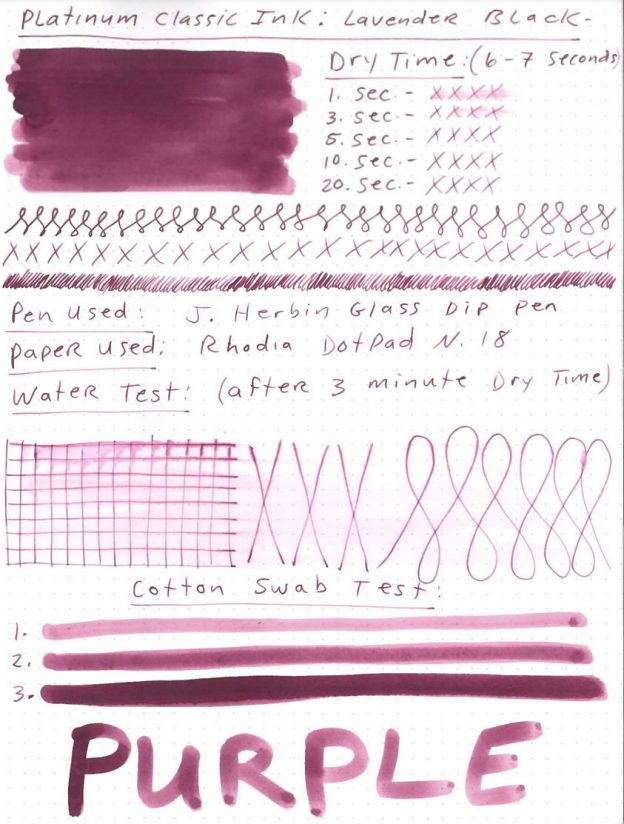 Platinum Classic Ink: Lavender Black-
Dry Time: (6-7 Seconds)
1. sec.- XXXX
3. sec.- XXXX
5. sec.- XXXX
10. sec.- XXXX
20. sec.- XXXX
Pen Used: J. Herbin Glass Dip Pen
Paper Used: Rhodia DotPad N. 18
Water Test: (after 3 minute Dry Time)
Cotton Swab Test:
1.
2.
3.
PURPLE